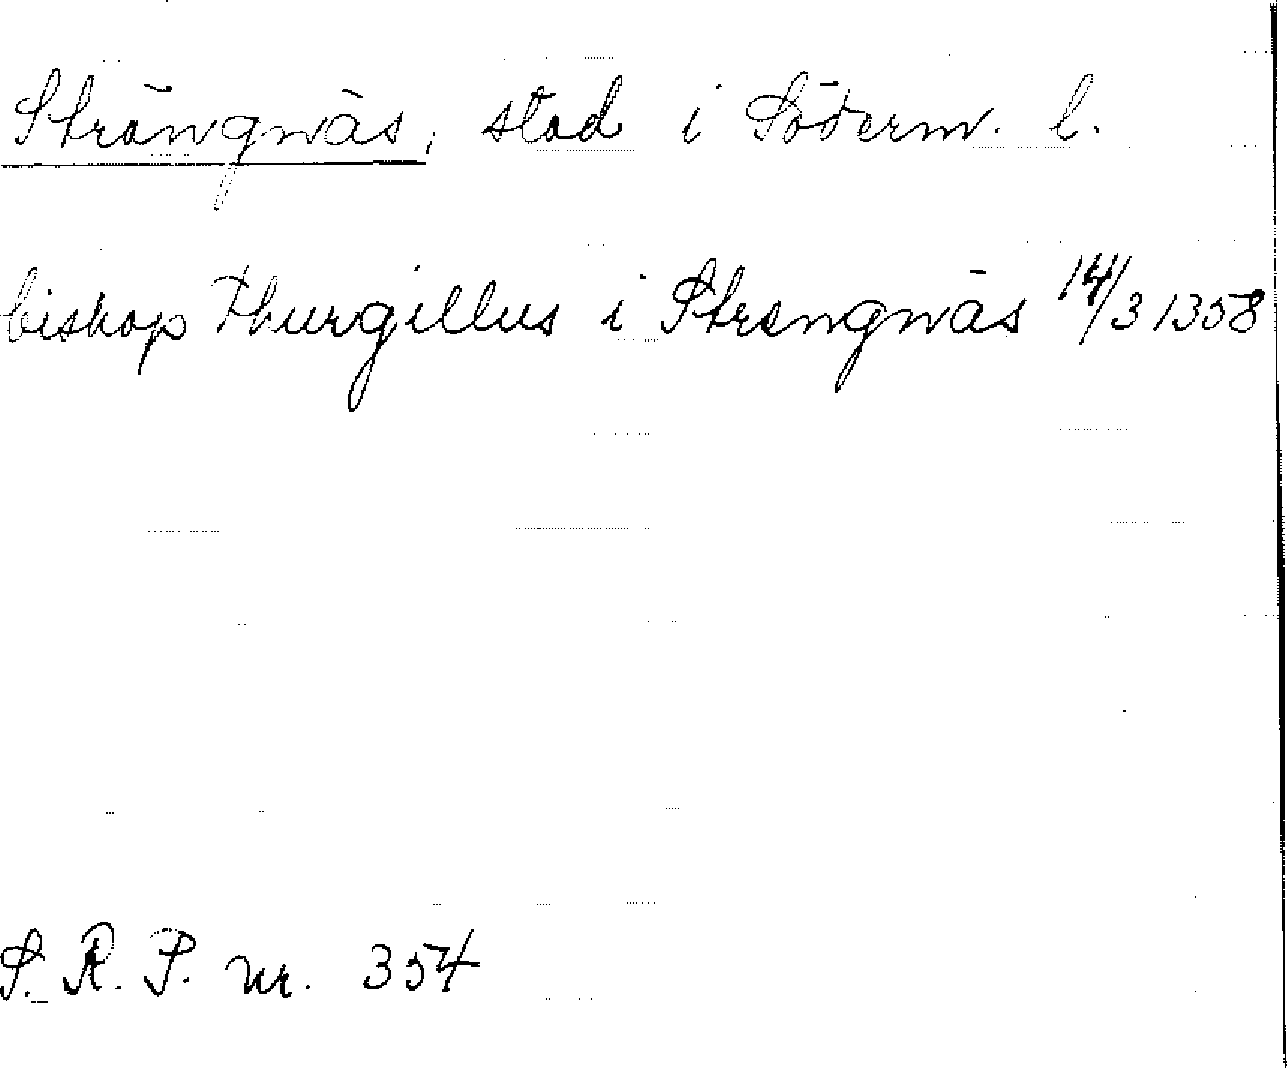 Strängnäs, stad i Söderm. l.
biskop Thurgillus i Strengnäs 14/3 1358
S. R. P. nr. 354